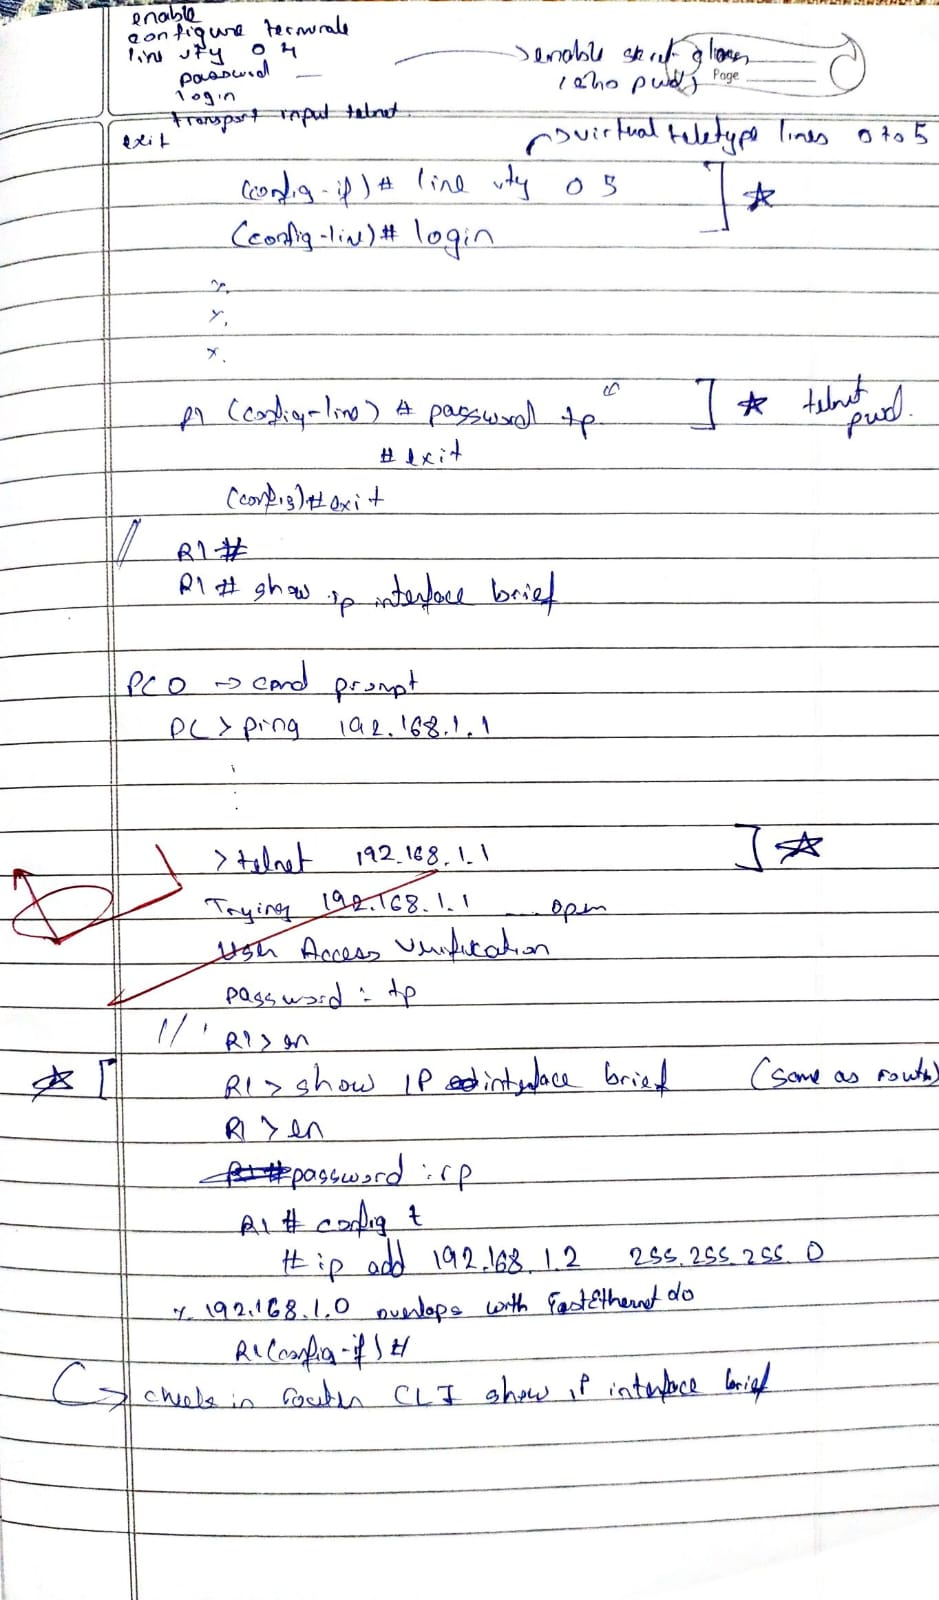 enable
configure terminale
line vty 0 4
password —
login
transport input telnet.
exit
→ enable
pwd)
Page
→ virtual teletype lines 0 to 5
(config-if) # line vty 0 5
(config-line) # login
x.
x.
x.
R1 (config-line) # password tp
] ☆ telnet pwd.
# exit
(config) # exit
// R1 #
R1 # show ip interface brief
PC0 → cmd prompt
PC > ping 192.168.1.1
:
:
> telnet 192.168.1.1 ] ☆
Trying 192.168.1.1 .... open
User Access Verification
password : tp
// R1 > en
☆ [ R1 > show IP interface brief (same as router)
R1 > en
password : rp
R1 # config t
# ip add 192.168.1.2 255.255.255.0
% 192.168.1.0 overlaps with FastEthernet 0/0
R1(config-if) #
→ check in router CLI show ip interface brief